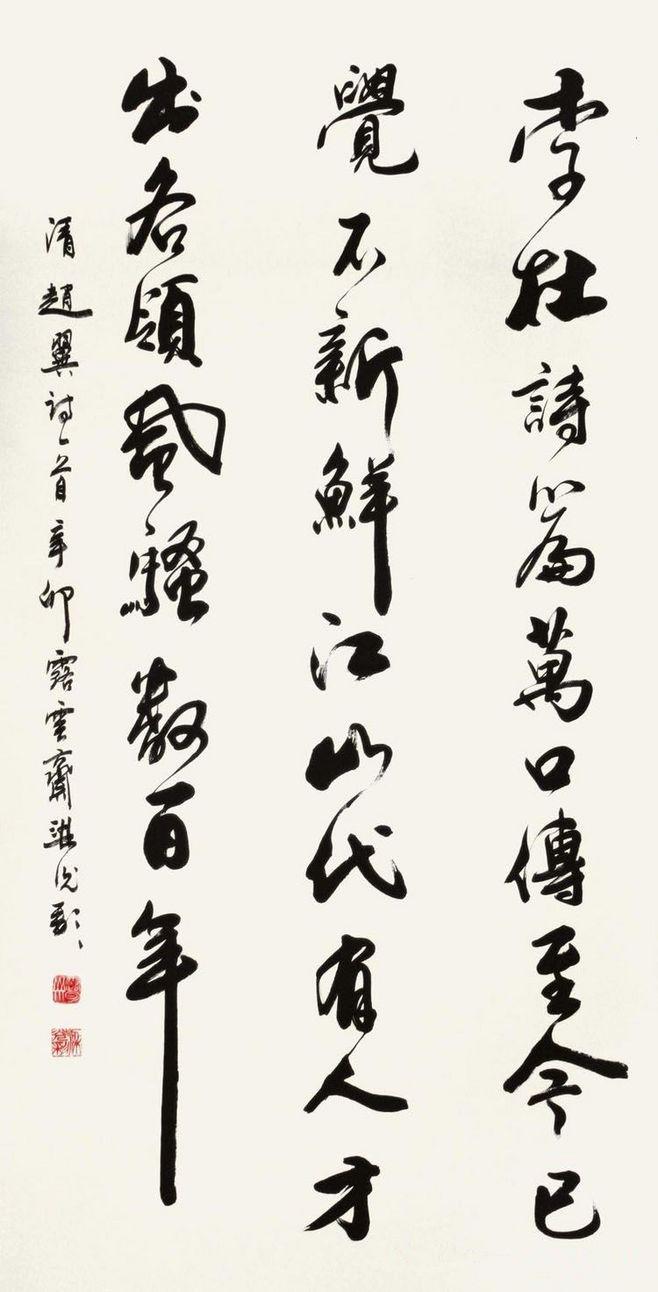 李杜詩篇萬口傳至今已
覺不新鮮江山代有人才
出各領風騷數百年
清趙翼詩一首辛卯露雲齋